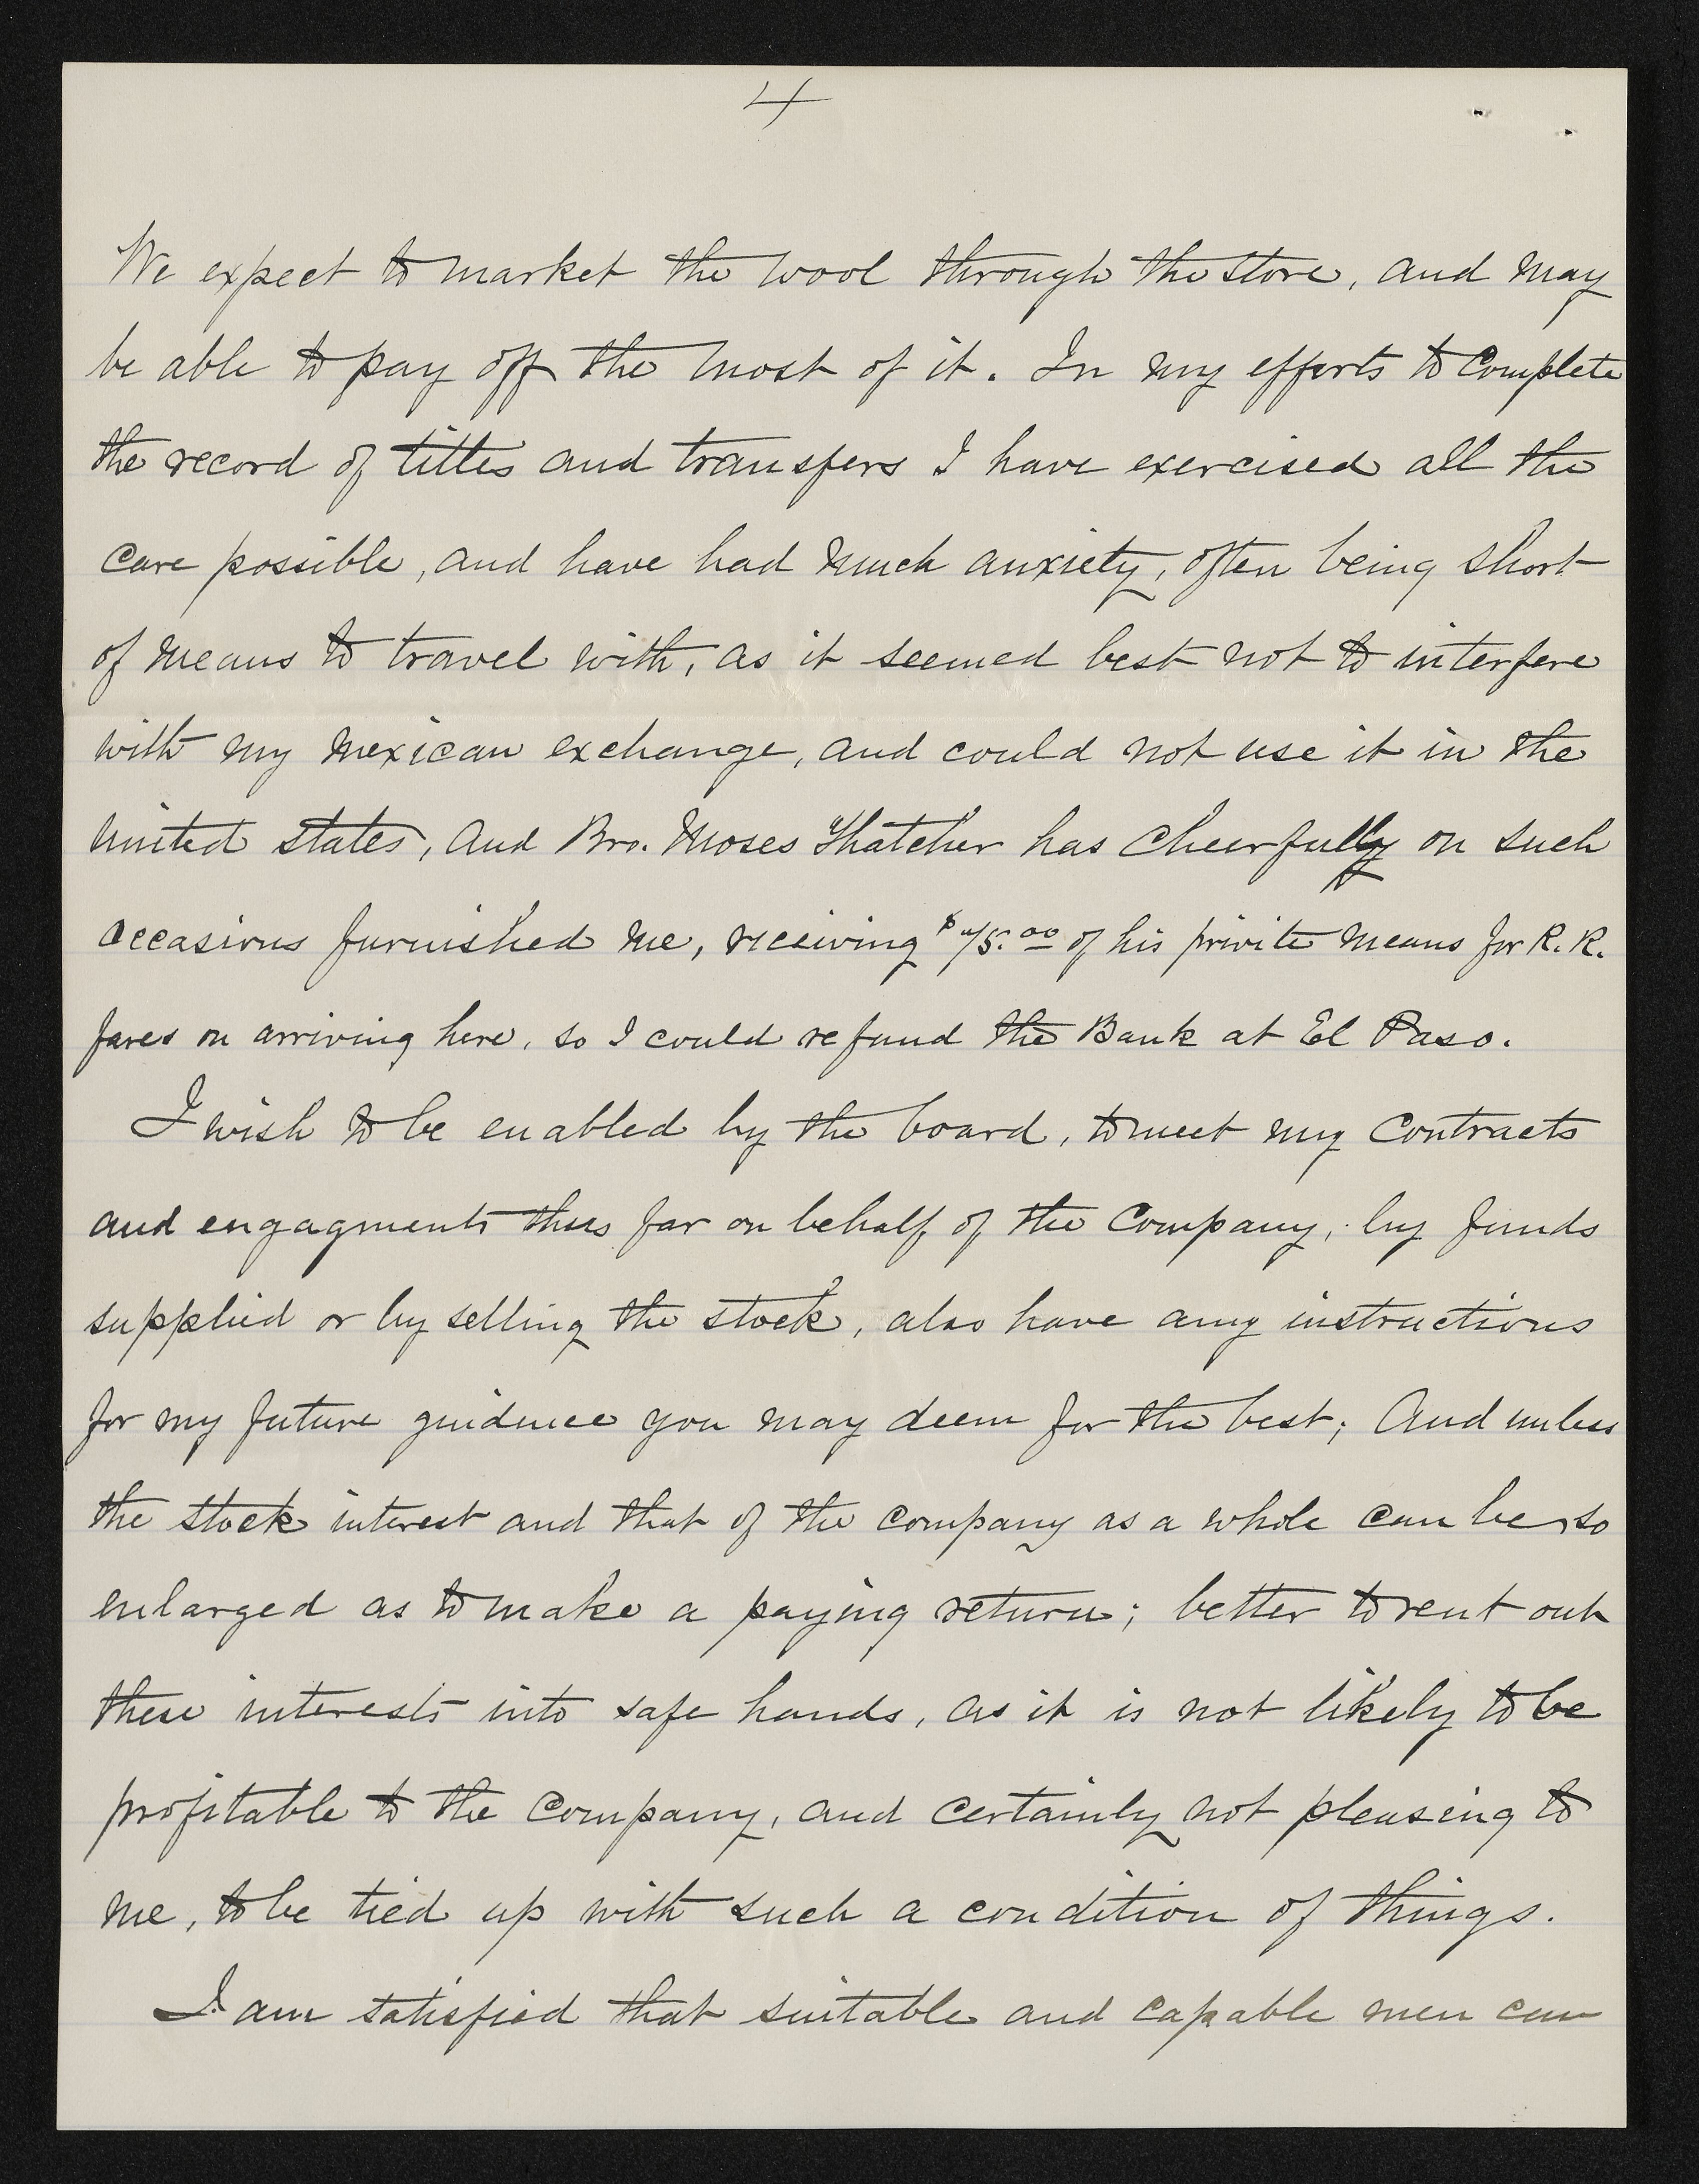 4
We expect to market the wool through the store, and may
be able to pay off the most of it. In my efforts to complete
the record of titles and transfers I have exercised all the
care possible, and have had much anxiety, often being short
of means to travel with, as it seemed best not to interfere
with my mexican exchange, and could not use it in the
united states, and Bro. Moses Thatcher has cheerfully on such
occasions furnished me, receiving of his privite means for R. R.
fares on arriving here, so I could refund the Bank at El Paso.
I wish to be enabled by the board, to meet my contracts
and engagments thus far on behalf of the Company, by funds
supplied or by selling the stock, also have any instructions
for my future guidnce you may deem for the best; And unless
the stock interest and that of the company as a whole can be so
enlarged as to make a paying return; better to rent out
these interests into safe hands, as it is not likely to be
profitable to the company, and certainly not pleasing to
me, to be tied up with such a condition of things.
I am satisfied that suitable and capable men can